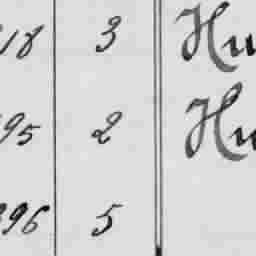 18 3 Hu
95 2 Hu
96 5